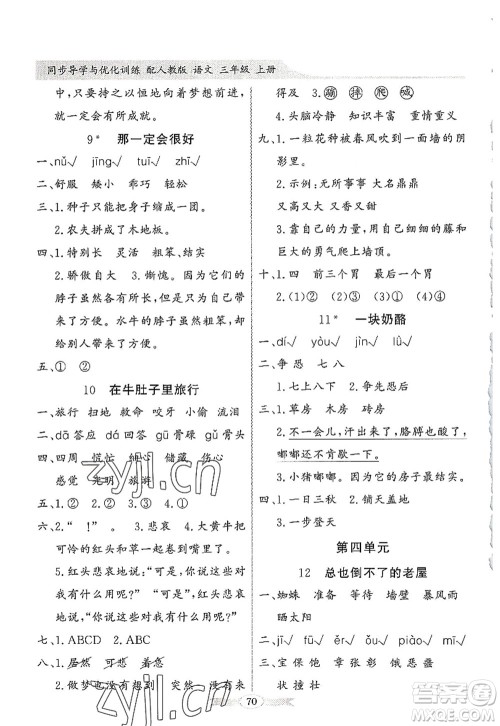 同步导学与优化训练 配人教版 语文 三年级 上册
中，只有持之以恒地向着梦想前进，才能成功。
9* 那一定会很好
一、nǔ√ jīng√ tuī√ zhī√
二、舒服 矮小 乖巧 轻松
三、1.种子只能把身子缩成一团。
2.农夫拼成了木地板。
四、1.特别长 灵活 粗笨、结实
2.骄傲自大 3.惭愧。它们的
脖子虽然各有各的形状，但也各
有各的长处。水牛的脖子虽然
粗笨，但它凭借结实有力的脖子
给别人带来了帮助。
五、②
10 在牛肚子里旅行
一、旅行 扫地 救命 咬牙 小偷 流泪
二、dā 答应 dá 回答 gú 骨碌 gǔ 骨头
四、四周 慌忙 牛胃 储藏 伤心
感觉 光明 旅游
五、1.② 2.③ 3.② 4.①
六、1."！"。 2.悲哀 3.大黄牛把
可怜的红头和草一起吞到肚子里。
4.红头悲哀地说："可是你说这些
对我有什么用呢？"
红头悲哀地说："可是你说的这些
对我有什么用呢？"
七、1.ABCD 2.ABD
八、1.居然 可怜 悲哀
2.做梦也想不到 突然 来不
得及 蹦 摔 爬
4.头脑冷静 知识丰富 重友情
九、1.一粒花种被春风吹到一面墙的阴
影里。
2.示例：无所事事 大名鼎鼎
又高又大 又香又甜
3.爬山虎凭借自己细细的藤和
巨大的勇气爬上墙顶。
十、1.四 前三个胃 最后一个胃
2.(1)② (2)① (3)①
11* 一块奶酪
一、dí√ yòu√ jìn√ lǜ√
二、争 恐 七 八
三、1.七上八下 2.争先恐后
四、1.草房 木房 砖房
2.不一会儿，汗出来了，胳膊也酸了，
嘟嘟还不肯歇一会儿。
3.小猪嘟嘟。它的房子最坚固。
四、1.一日三秋 2.铺天盖地
3.一步登天
第四单元
12 总也倒不了的老屋
一、蜘蛛 准备 等待 墙壁 暴风雨
晒太阳
二、zhǔn√ piāo√ ū√ fǔ√
三、宝 保 饱 张 彰 感 憾
状 撞 壮
70
zyjl.cn
zyjl.cn